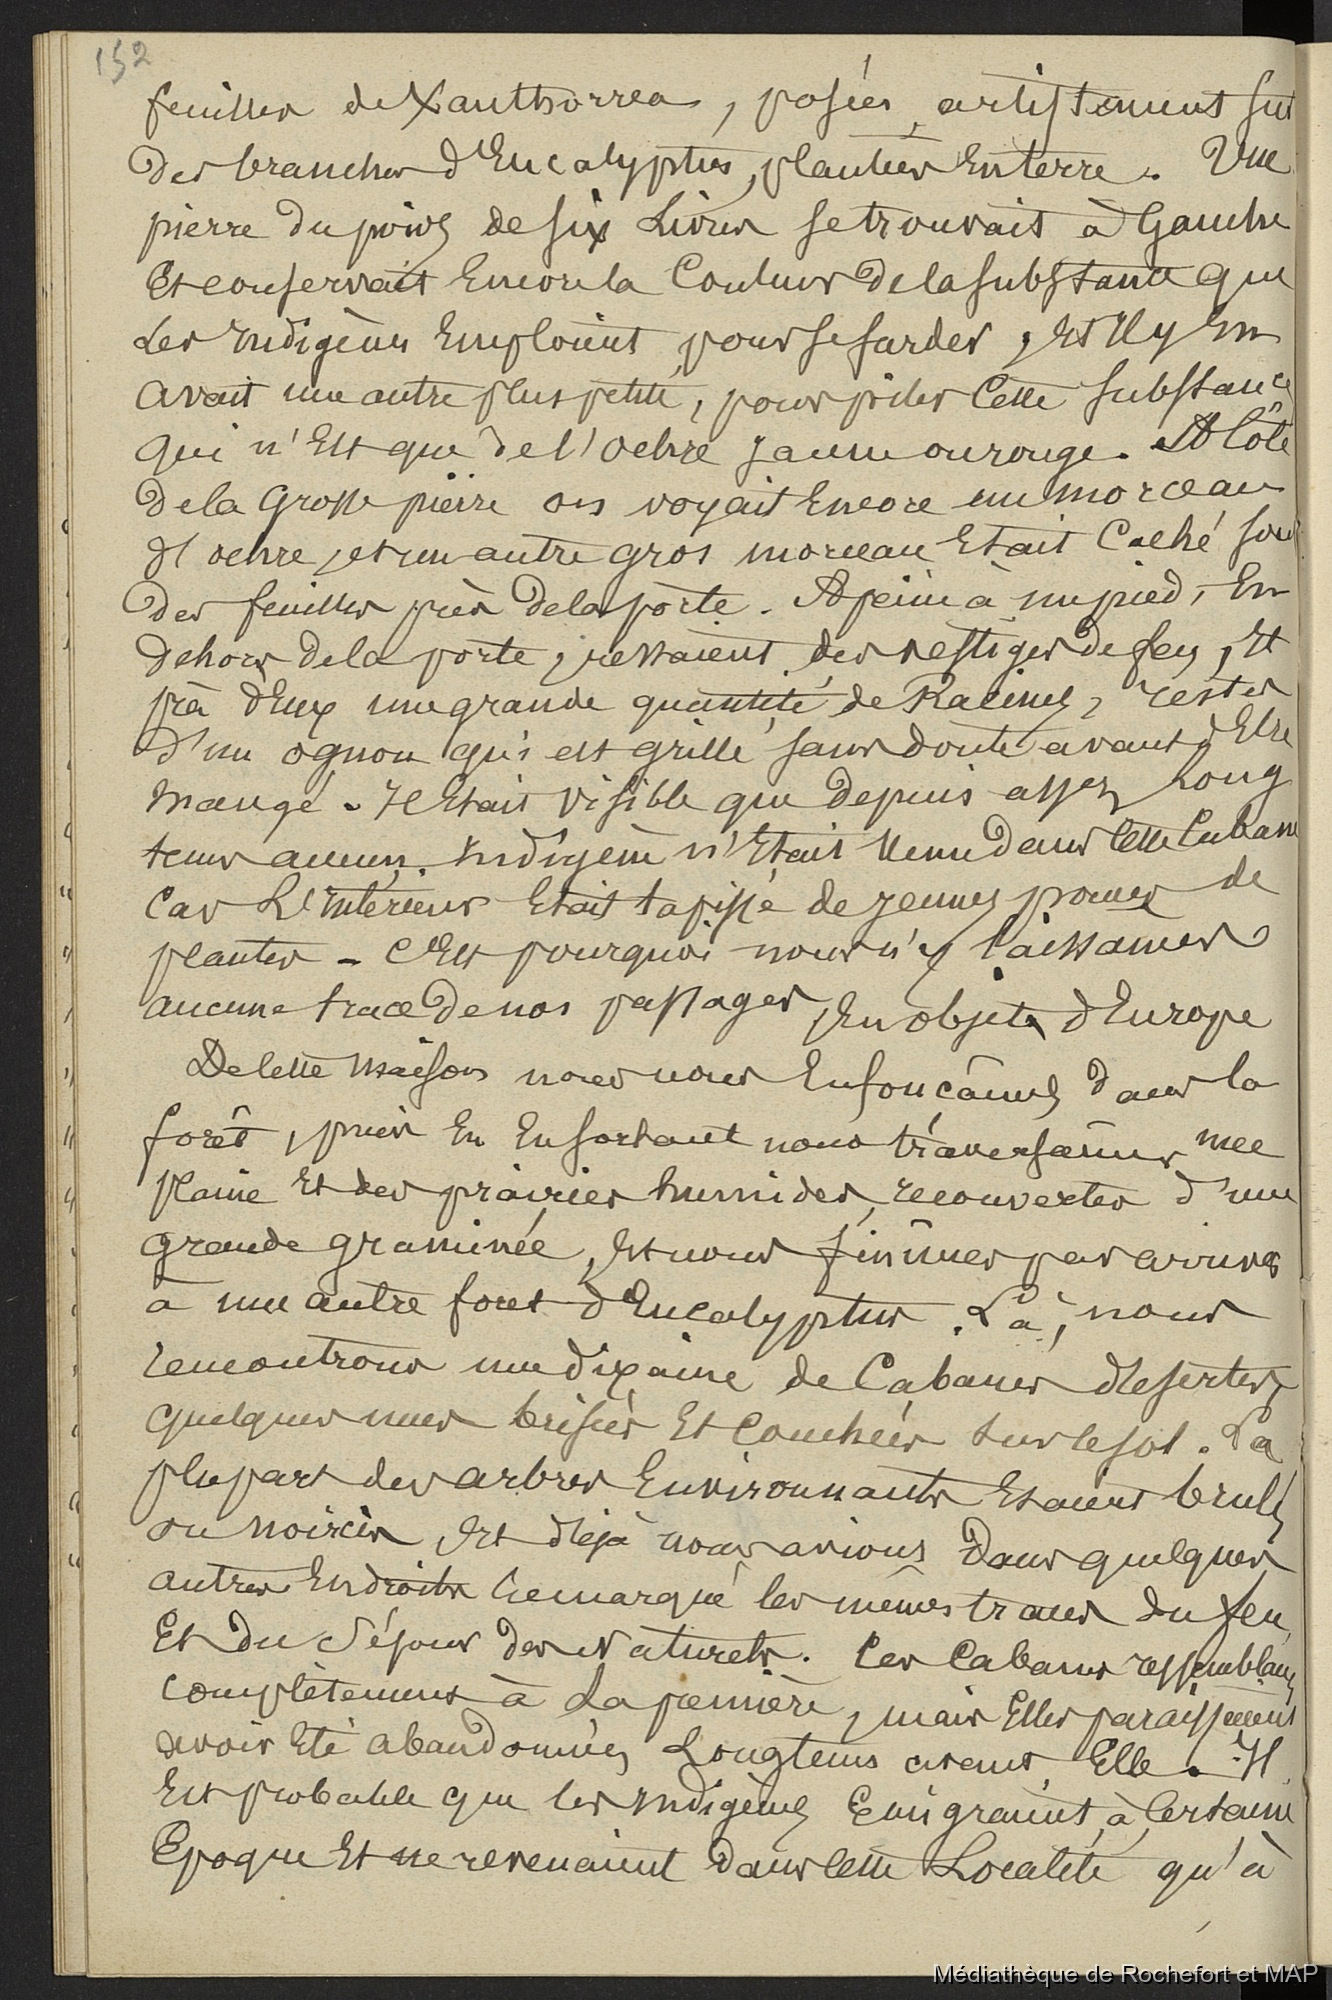 152
feuilles de Xanthorrea, posées artistement sur
des branches d'Eucalyptus, plantées En terre. Une
pierre du poids de six Livres se trouvait à Gauche
Et conservait Encore la Couleur de la substance que
Les Indigènes Emploient pour se farder, Et Il y En
avait une autre plus petite, pour piler Cette substance
qui n'Est que de l'ochre jaune ou rouge. A Côté
de la Grosse pierre on voyait Encore un morceau
d'ochre, et un autre gros morceau Etait Caché sous
des feuilles près de la porte. A peine à un pied, En
dehors de la porte, restaient des vestiges de feu, Et
près d'Eux une grande quantité de Racines, restes
d'un ognon qui est grillé sans doute avant d'Etre
mangé. Il Etait visible que depuis assez Long
tems aucun Indigène n'Etait Venu dans Cette Cabane
Car L'Intérieur Etait tapissé de jeunes pouces de
plantes - C'Est pourquoi nous n'y laissames
aucune trace de nos passages, En objets d'Europe
De Cette maison nous nous Enfonçâmes dans la
forêt, puis En En sortant nous traversâmes une
plaine Et des prairies humides, recouvertes d'une
grande graminée, Et nous finîmes par arriver
à une autre foret d'Eucalyptus. Là, nous
rencontrons une dixaine de Cabanes désertes,
quelques unes brisées Et Couchées sur le sol. La
plupart des arbres Environnants Etaient brulés
ou noircis, Et déjà nous avions dans quelques
autres Endroits remarqué les mêmes traces du feu,
Et du Séjour des Naturels. Ces Cabanes ressemblaient
complètement à La première, mais Elles paraissaient
avoir Eté abandonnées Longtems avant Elle. Il
Est probable que les Indigènes Emigraient à Certaine
Epoque Et ne revenaient dans Cette Localité qu'à
Médiathèque de Rochefort et MAP